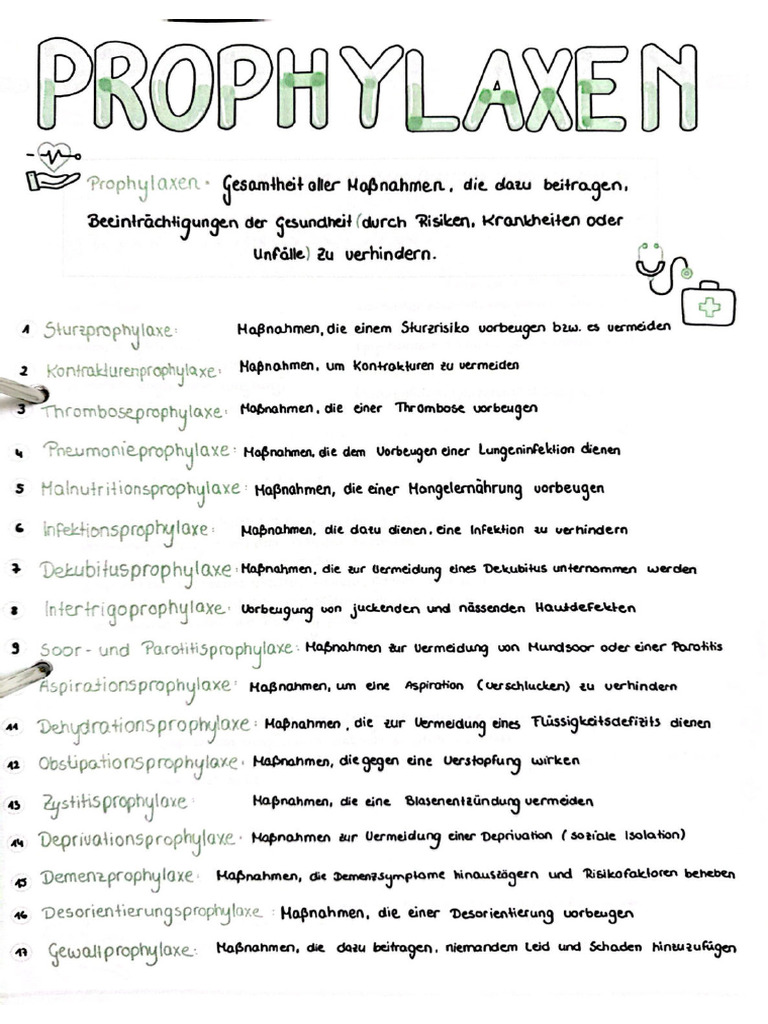 PROPHYLAXEN
Prophylaxen: Gesamtheit aller Maßnahmen, die dazu beitragen,
Beeinträchtigungen der Gesundheit (durch Risiken, Krankheiten oder
Unfälle) zu verhindern.
1 Sturzprophylaxe: Maßnahmen, die einem Sturzrisiko vorbeugen bzw. es vermeiden
2 Kontrakturenprophylaxe: Maßnahmen, um Kontrakturen zu vermeiden
3 Thromboseprophylaxe: Maßnahmen, die einer Thrombose vorbeugen
4 Pneumonieprophylaxe: Maßnahmen, die dem Vorbeugen einer Lungeninfektion dienen
5 Malnutritionsprophylaxe: Maßnahmen, die einer Mangelernährung vorbeugen
6 Infektionsprophylaxe: Maßnahmen, die dazu dienen, eine Infektion zu verhindern
7 Dekubitusprophylaxe: Maßnahmen, die zur Vermeidung eines Dekubitus unternommen werden
8 Intertrigoprophylaxe: Vorbeugung von juckenden und nässenden Hautdefekten
9 Soor- und Parotitisprophylaxe: Maßnahmen zur Vermeidung von Mundsoor oder einer Parotitis
Aspirationsprophylaxe: Maßnahmen, um eine Aspiration (Verschlucken) zu verhindern
11 Dehydrationsprophylaxe: Maßnahmen, die zur Vermeidung eines Flüssigkeitsdefizits dienen
12 Obstipationsprophylaxe: Maßnahmen, die gegen eine Verstopfung wirken
13 Zystitisprophylaxe: Maßnahmen, die eine Blasenentzündung vermeiden
14 Deprivationsprophylaxe: Maßnahmen zur Vermeidung einer Deprivation (soziale Isolation)
15 Demenzprophylaxe: Maßnahmen, die Demenzsymptome hinauszögern und Risikofaktoren beheben
16 Desorientierungsprophylaxe: Maßnahmen, die einer Desorientierung vorbeugen
17 Gewaltprophylaxe: Maßnahmen, die dazu beitragen, niemandem Leid und Schaden hinzuzufügen